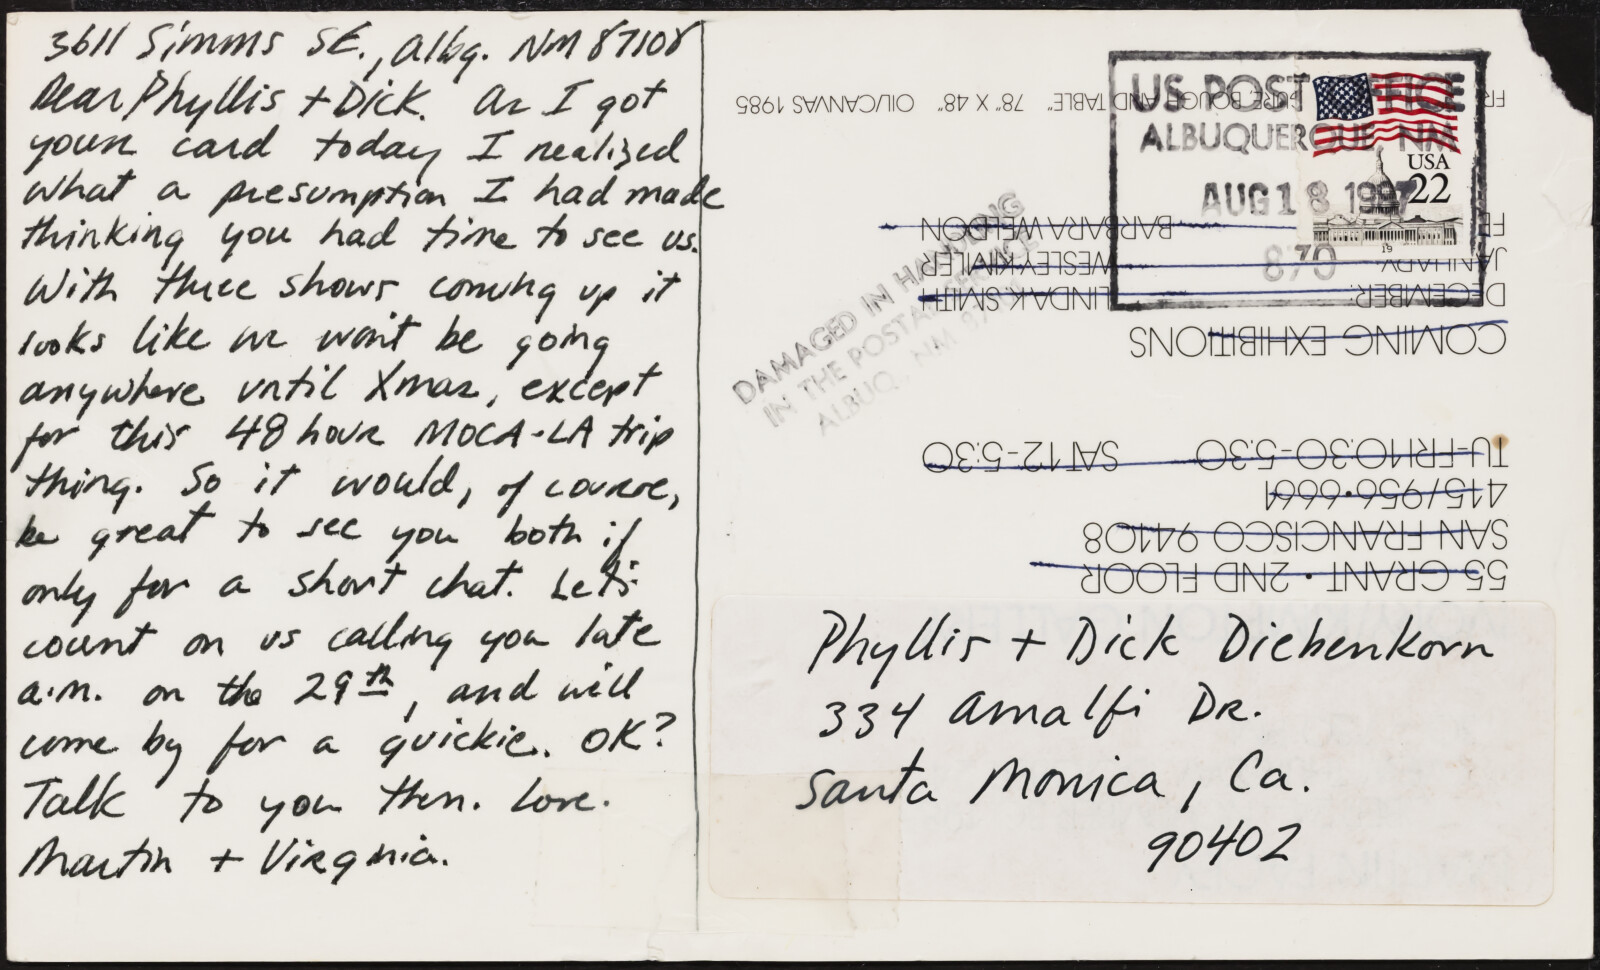 3611 Simms SE., Albq. NM 87108
Dear Phyllis + Dick. As I got
your card today I realized
what a presumption I had made
thinking you had time to see us.
With three shows coming up it
looks like we won't be going
anywhere until Xmas, except
for this 48 hour MOCA-LA trip
thing. So it would, of course,
be great to see you both if
only for a short chat. Let's
count on us calling you late
a.m. on the 29th, and will
come by for a quickie. OK?
Talk to you then. Love.
Martin + Virginia.
US POST OFFICE
ALBUQUERQUE NM
AUG 18 1987
870
USA
22
DAMAGED IN HANDLING
IN THE POSTAL SERVICE
ALBUQ., NM
BOUGH AND TABLE" 78" X 48" OIL/CANVAS 1985
BARBARA WELDON
JANUARY WESLEY KIMLER
DECEMBER: LINDA K SMITH
COMING EXHIBITIONS
TU-FRI 10:30-5:30 SAT 12-5:30
415/956-6661
SAN FRANCISCO 94108
55 GRANT • 2ND FLOOR
Phyllis + Dick Diebenkorn
334 Amalfi Dr.
Santa Monica, Ca.
90402